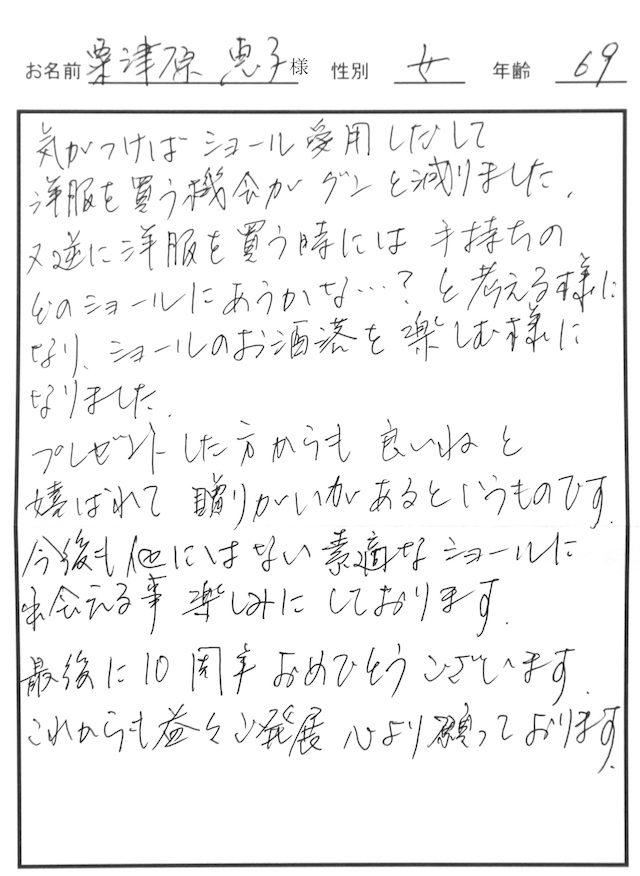 お名前 粟津原 恵子 様 性別 女 年齢 69
気がつけば ショール 愛用しだして
洋服を買う機会が グンと減りました。
又逆に洋服を買う時には 手持ちの
どのショールにあうかな…？と考える様に
なり、ショールのお洒落を楽しむ様に
なりました。
プレゼントした方からも 良いねと
嬉ばれて 贈りがいがあるというものです。
今後も他にはない素適なショールに
出会える事 楽しみにしております。
最後に10周年おめでとうございます。
これからも益々ご発展 心より願っております。